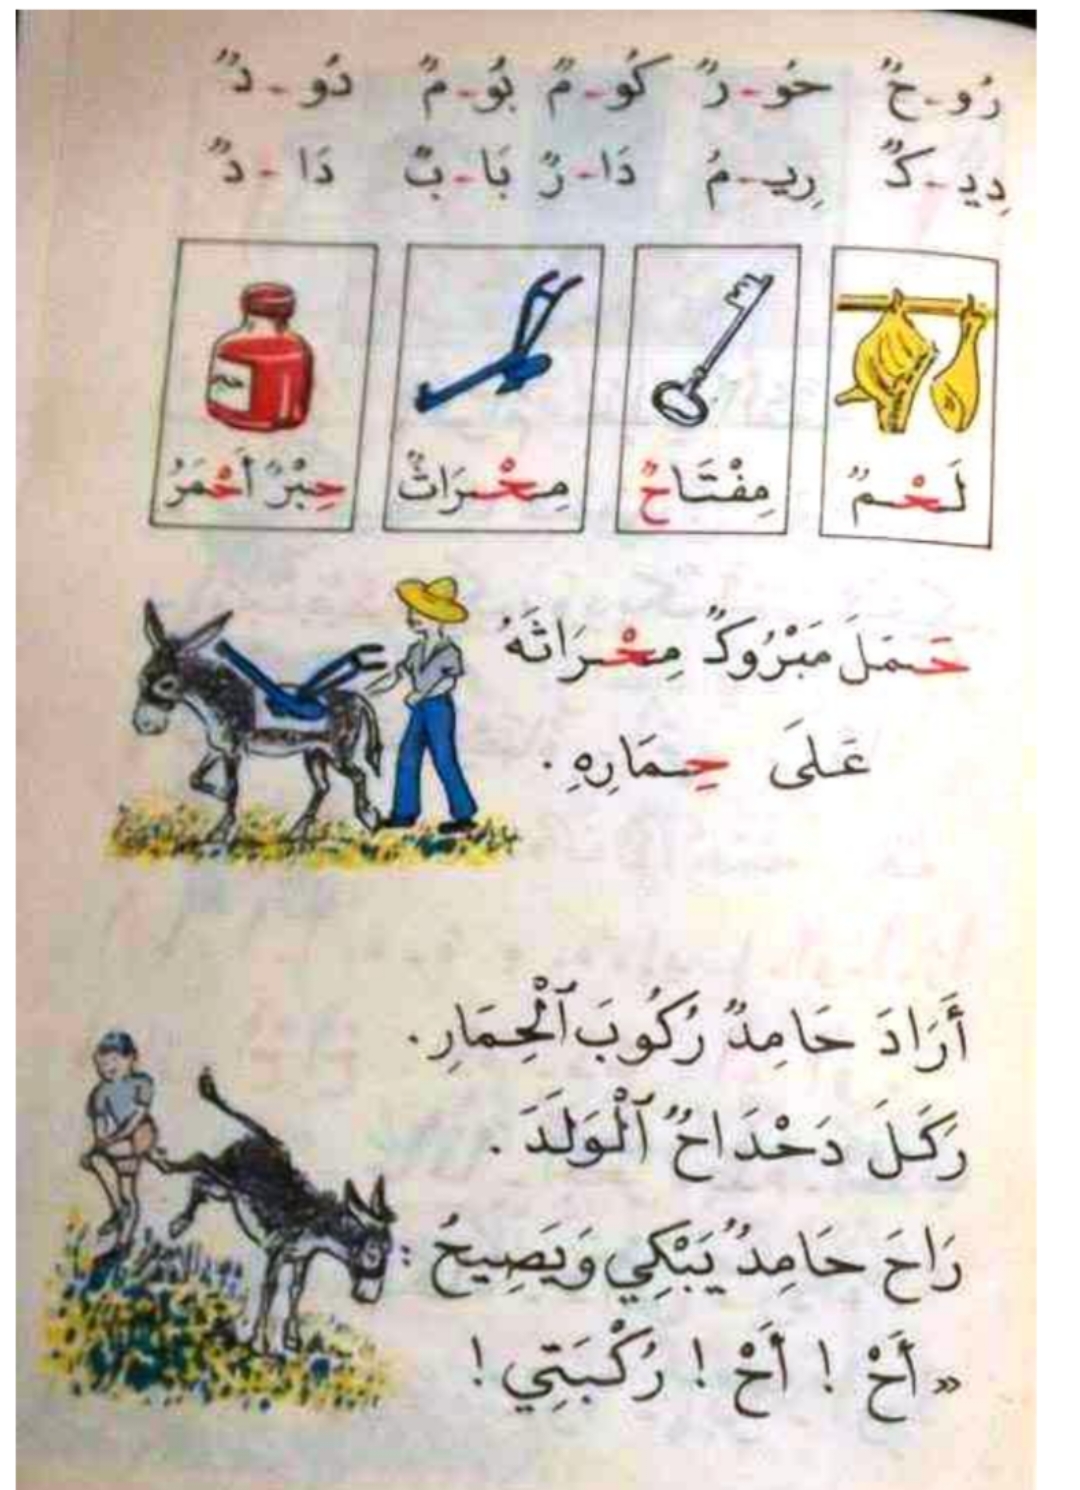 رُو-حٌ حُو-رٌ كُو-مٌ بُو-مٌ دُو-دٌ
دِيـ-ـكٌ رِيـ-ـمُ دَا-رٌ بَا-بٌ دَا-دٌ
لَحْمٌ مِفْتَاحٌ مِحْرَاثٌ حِبْرٌ أَحْمَرُ
حَمَلَ مَبْرُوكٌ مِحْرَاثَهُ
عَلَى حِمَارِهِ.
أَرَادَ حَامِدٌ رُكُوبَ ٱلْحِمَارِ.
رَكَلَ دَحْدَاحٌ ٱلْوَلَدَ.
رَاحَ حَامِدٌ يَبْكِي وَيَصِيحُ:
« أَحْ ! أَحْ ! رُكْبَتِي !